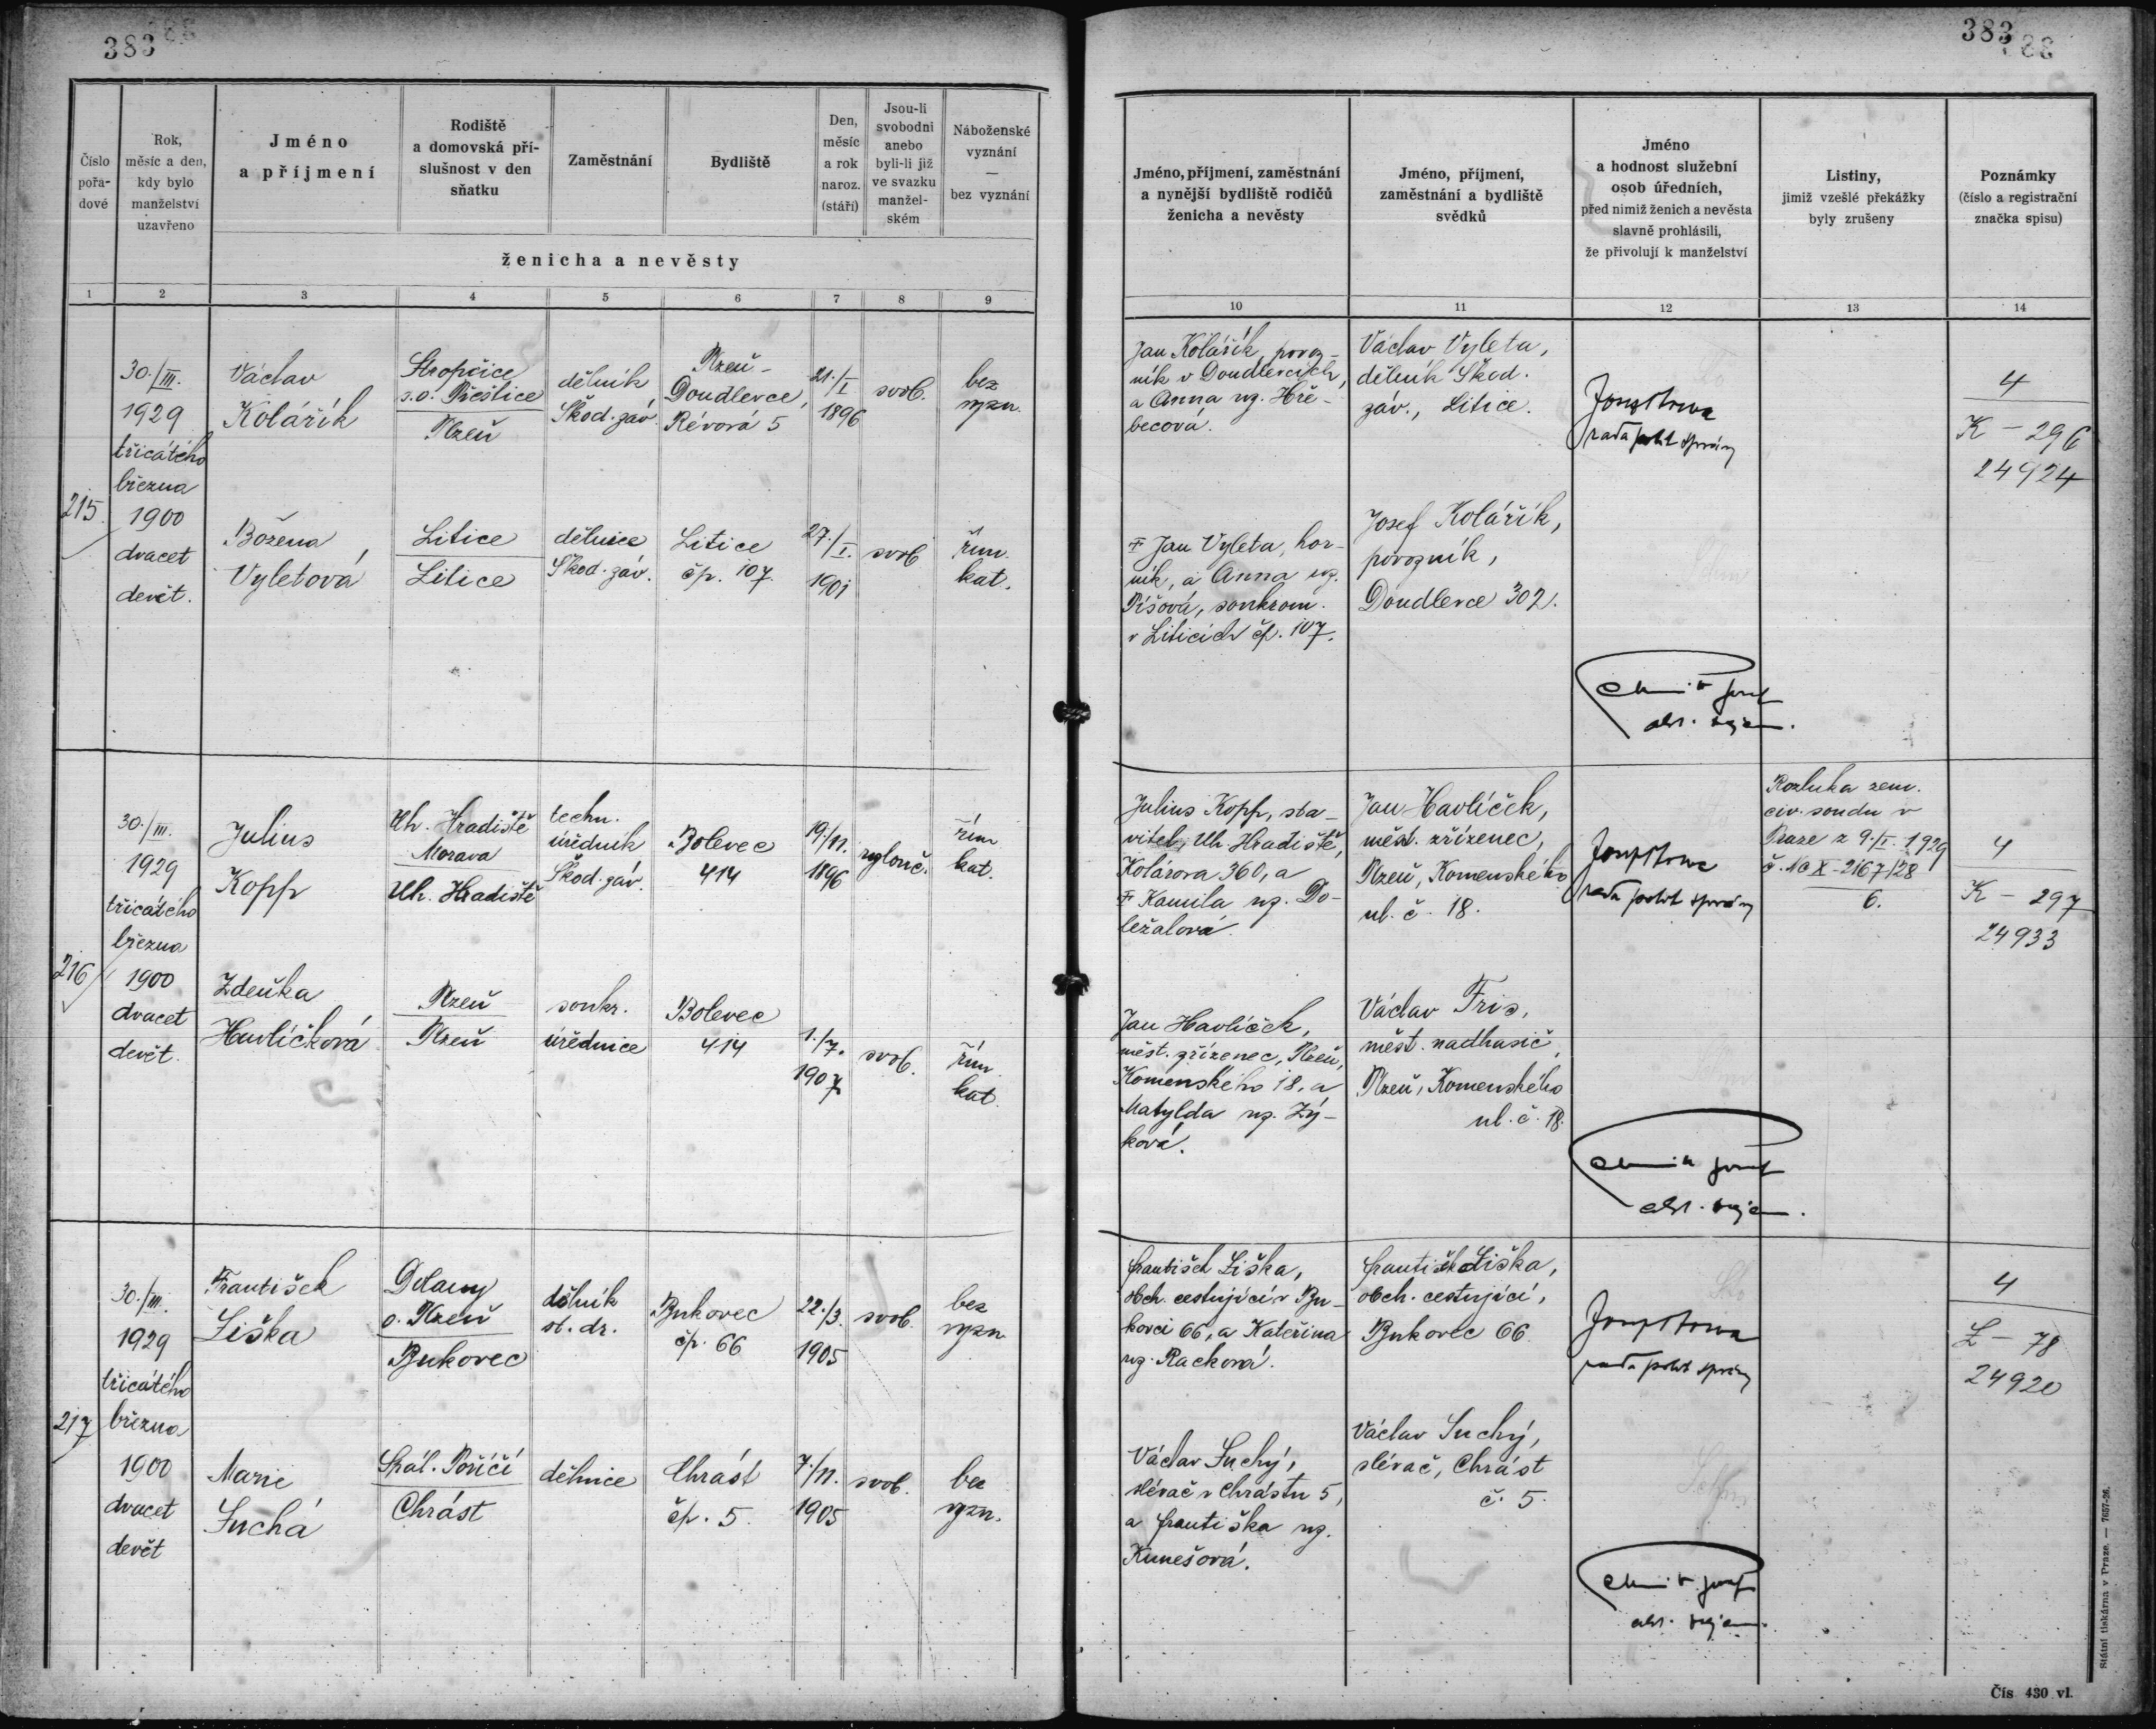 383
383
Číslo pořa-dové
Rok, měsíc a den, kdy bylo manželství uzavřeno
Jméno a příjmení
Rodiště a domovská pří-slušnost v den sňatku
Zaměstnání
Bydliště
Den, měsíc a rok naroz. (stáří)
Jsou-li svobodni anebo byli-li již ve svazku manžel-ském
Náboženské vyznání — bez vyznání
ženicha a nevěsty
Jméno, příjmení, zaměstnání a nynější bydliště rodičů ženicha a nevěsty
Jméno, příjmení, zaměstnání a bydliště svědků
Jméno a hodnost služební osob úředních, před nimiž ženich a nevěsta slavně prohlásili, že přivolují k manželství
Listiny, jimiž vzešlé překážky byly zrušeny
Poznámky (číslo a registrační značka spisu)
1 2 3 4 5 6 7 8 9 10 11 12 13 14
215
30./III.
1929
třicátého
března
1900
dvacet
devět.
Václav
Kolářík
Stropčice
s.o. Přeštice
Plzeň
dělník
Škod. záv.
Plzeň -
Doudlevce,
Révová 5
21./I
1896
svob.
bez
vyzn.
Jan Kolářík, povoz-
ník v Doudlevcích,
a Anna roz. Hře-
becová.
Václav Vyleta,
dělník Škod.
záv., Litice.
rada polit správy
4
K - 296
24924
Božena
Vyletová
Litice
Litice
dělnice
Škod. záv.
Litice
čp. 107.
27./I.
1901
svob
řím.
kat.
† Jan Vyleta, hor-
ník, a Anna roz.
Píšová, soukrom.
v Liticích čp. 107.
Josef Kolářík,
povozník,
Doudlevce 302.
216
30./III.
1929
třicátého
března
1900
dvacet
devět.
Julius
Kopp
Uh. Hradiště
Morava
Uh. Hradiště
techn.
úředník
Škod. záv.
Bolevec
414
19./11.
1896
rozlouč.
řím
kat.
Julius Kopp, sta-
vitel, Uh. Hradiště,
Kolárova 360, a
† Kamila roz. Do-
ležalová
Jan Havlíček,
měst. zřízenec,
Plzeň, Komenského
ul. č. 18.
rada polit správy
Rozluka zem.
civ. soudu v
Praze z 9./I. 1929
č. Nc X - 2167/28
6.
4
K - 297
24933
Zdeňka
Havlíčková
Plzeň
Plzeň
soukr.
úřednice
Bolevec
414
1./7.
1907
svob.
řím.
kat.
Jan Havlíček,
měst. zřízenec, Plzeň,
Komenského 18, a
Matylda roz. Zý-
ková.
Václav Fris,
měst. nadhasič,
Plzeň, Komenského
ul. č. 18.
217
30./III.
1929
třicátého
března
1900
dvacet
devět
František
Liška
Dolany
o. Plzeň
Bukovec
dělník
st. dr.
Bukovec
čp. 66
22./3.
1905
svob.
bez
vyzn.
František Liška,
obch. cestující v Bu-
kovci 66, a Kateřina
roz. Racková.
František Liška,
obch. cestující,
Bukovec 66.
rada polit správy
4
L - 78
24920
Marie
Suchá
Skál. Poříčí
Chrást
dělnice
Chrást
čp. 5.
7./11.
1905
svob.
bez
vyzn.
Václav Suchý,
slévač v Chrástu 5,
a Františka roz.
Kunešová.
Václav Suchý,
slévač, Chrást
č. 5.
Státní tiskárna v Praze. — 7657-26.
Čís 430 vl.